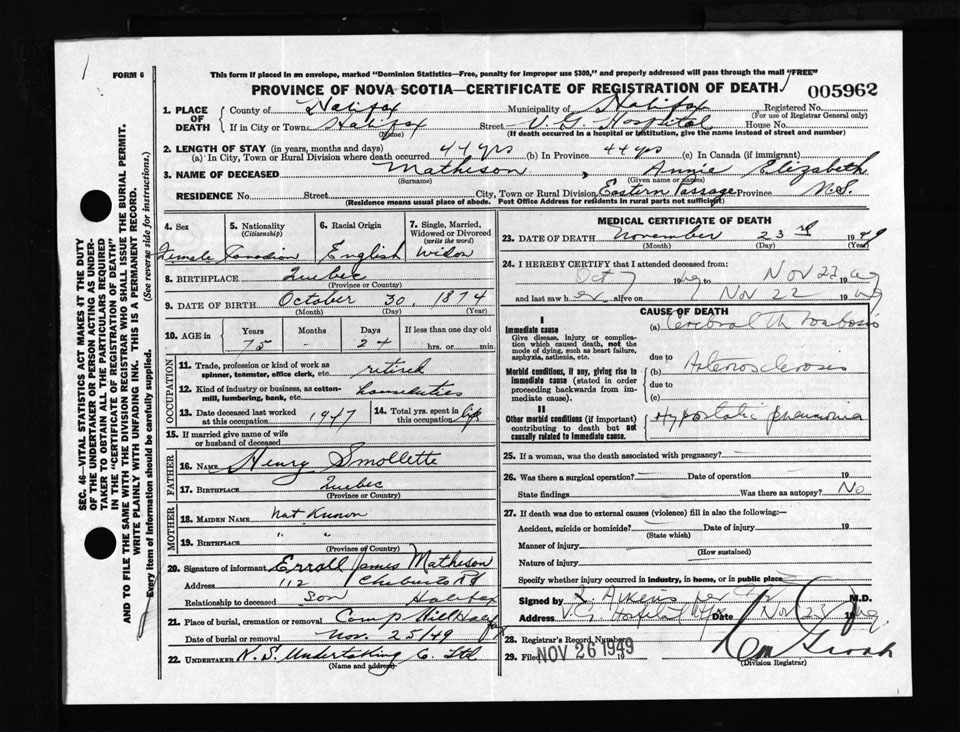 FORM 6
This form if placed in an envelope, marked "Dominion Statistics—Free, penalty for improper use $300," and properly addressed will pass through the mail "FREE"
PROVINCE OF NOVA SCOTIA—CERTIFICATE OF REGISTRATION OF DEATH
005962
1. PLACE OF DEATH
County of Halifax Municipality of Halifax Registered No.
(For use of Registrar General only)
If in City or Town Halifax Street V.G. Hospital House No.
(Name) (If death occurred in a hospital or institution, give the name instead of street and number)
2. LENGTH OF STAY (in years, months and days)
(a) In City, Town or Rural Division where death occurred 44 yrs (b) In Province 44 yrs (c) In Canada (if immigrant)
3. NAME OF DECEASED Matheson , Annie Elizabeth
(Surname) (Given name or names)
RESIDENCE No. Street City, Town or Rural Division Eastern Passage Province N.S.
(Residence means usual place of abode. Post Office Address for residents in rural parts not sufficient)
4. Sex 5. Nationality (Citizenship) 6. Racial Origin 7. Single, Married, Widowed or Divorced (write the word)
Female Canadian English Widow
8. BIRTHPLACE Quebec
(Province or Country)
9. DATE OF BIRTH October 30, 1874
(Month) (Day) (Year)
10. AGE in Years Months Days If less than one day old
75 - 24 hrs. or min.
OCCUPATION
11. Trade, profession or kind of work as spinner, teamster, office clerk, etc. retired
12. Kind of industry or business, as cotton-mill, lumbering, bank, etc. house duties
13. Date deceased last worked at this occupation 1947
14. Total yrs. spent in this occupation life
15. If married give name of wife or husband of deceased
FATHER
16. NAME Henry Smollette
17. BIRTHPLACE Quebec
(Province or Country)
MOTHER
18. MAIDEN NAME Not Known
19. BIRTHPLACE " "
(Province or Country)
20. Signature of informant Erroll James Matheson
Address 112 Chebucto Rd
Relationship to deceased Son Halifax
21. Place of burial, cremation or removal Camp Hill Halifax
Date of burial or removal Nov. 25/49
22. UNDERTAKER N.S. Undertaking Co. Ltd
(Name and address)
MEDICAL CERTIFICATE OF DEATH
23. DATE OF DEATH November 23rd 1949
(Month) (Day) (Year)
24. I HEREBY CERTIFY that I attended deceased from:
Oct 7 1949 to Nov 23 1949
and last saw her alive on Nov 22 1949
CAUSE OF DEATH
I
Immediate cause
Give disease, injury or complication which caused death, not the mode of dying, such as heart failure, asphyxia, asthenia, etc.
(a) Cerebral Thrombosis
due to
Morbid conditions, if any, giving rise to immediate cause (stated in order proceeding backwards from immediate cause).
(b) Arteriosclerosis
due to
(c)
II
Other morbid conditions (if important) contributing to death but not causally related to immediate cause.
Hypostatic pneumonia
25. If a woman, was the death associated with pregnancy?
26. Was there a surgical operation? Date of operation 19
State findings Was there an autopsy? No
27. If death was due to external causes (violence) fill in also the following:—
Accident, suicide or homicide? Date of injury 19
(State which)
Manner of injury
(How sustained)
Nature of injury
Specify whether injury occurred in industry, in home, or in public place
Signed by M.D.
Address V.G. Hospital Hfx Date Nov 23 1949
28. Registrar's Record Number
29. Filed NOV 26 1949 19
(Division Registrar)
SEC. 46—VITAL STATISTICS ACT MAKES IT THE DUTY
OF THE UNDERTAKER OR PERSON ACTING AS UNDER-
TAKER TO OBTAIN ALL THE PARTICULARS REQUIRED
IN THE "CERTIFICATE OF REGISTRATION OF DEATH"
AND TO FILE THE SAME WITH THE DIVISION REGISTRAR WHO SHALL ISSUE THE BURIAL PERMIT.
WRITE PLAINLY WITH UNFADING INK. THIS IS A PERMANENT RECORD.
Every item of information should be carefully supplied. (See reverse side for instructions.)